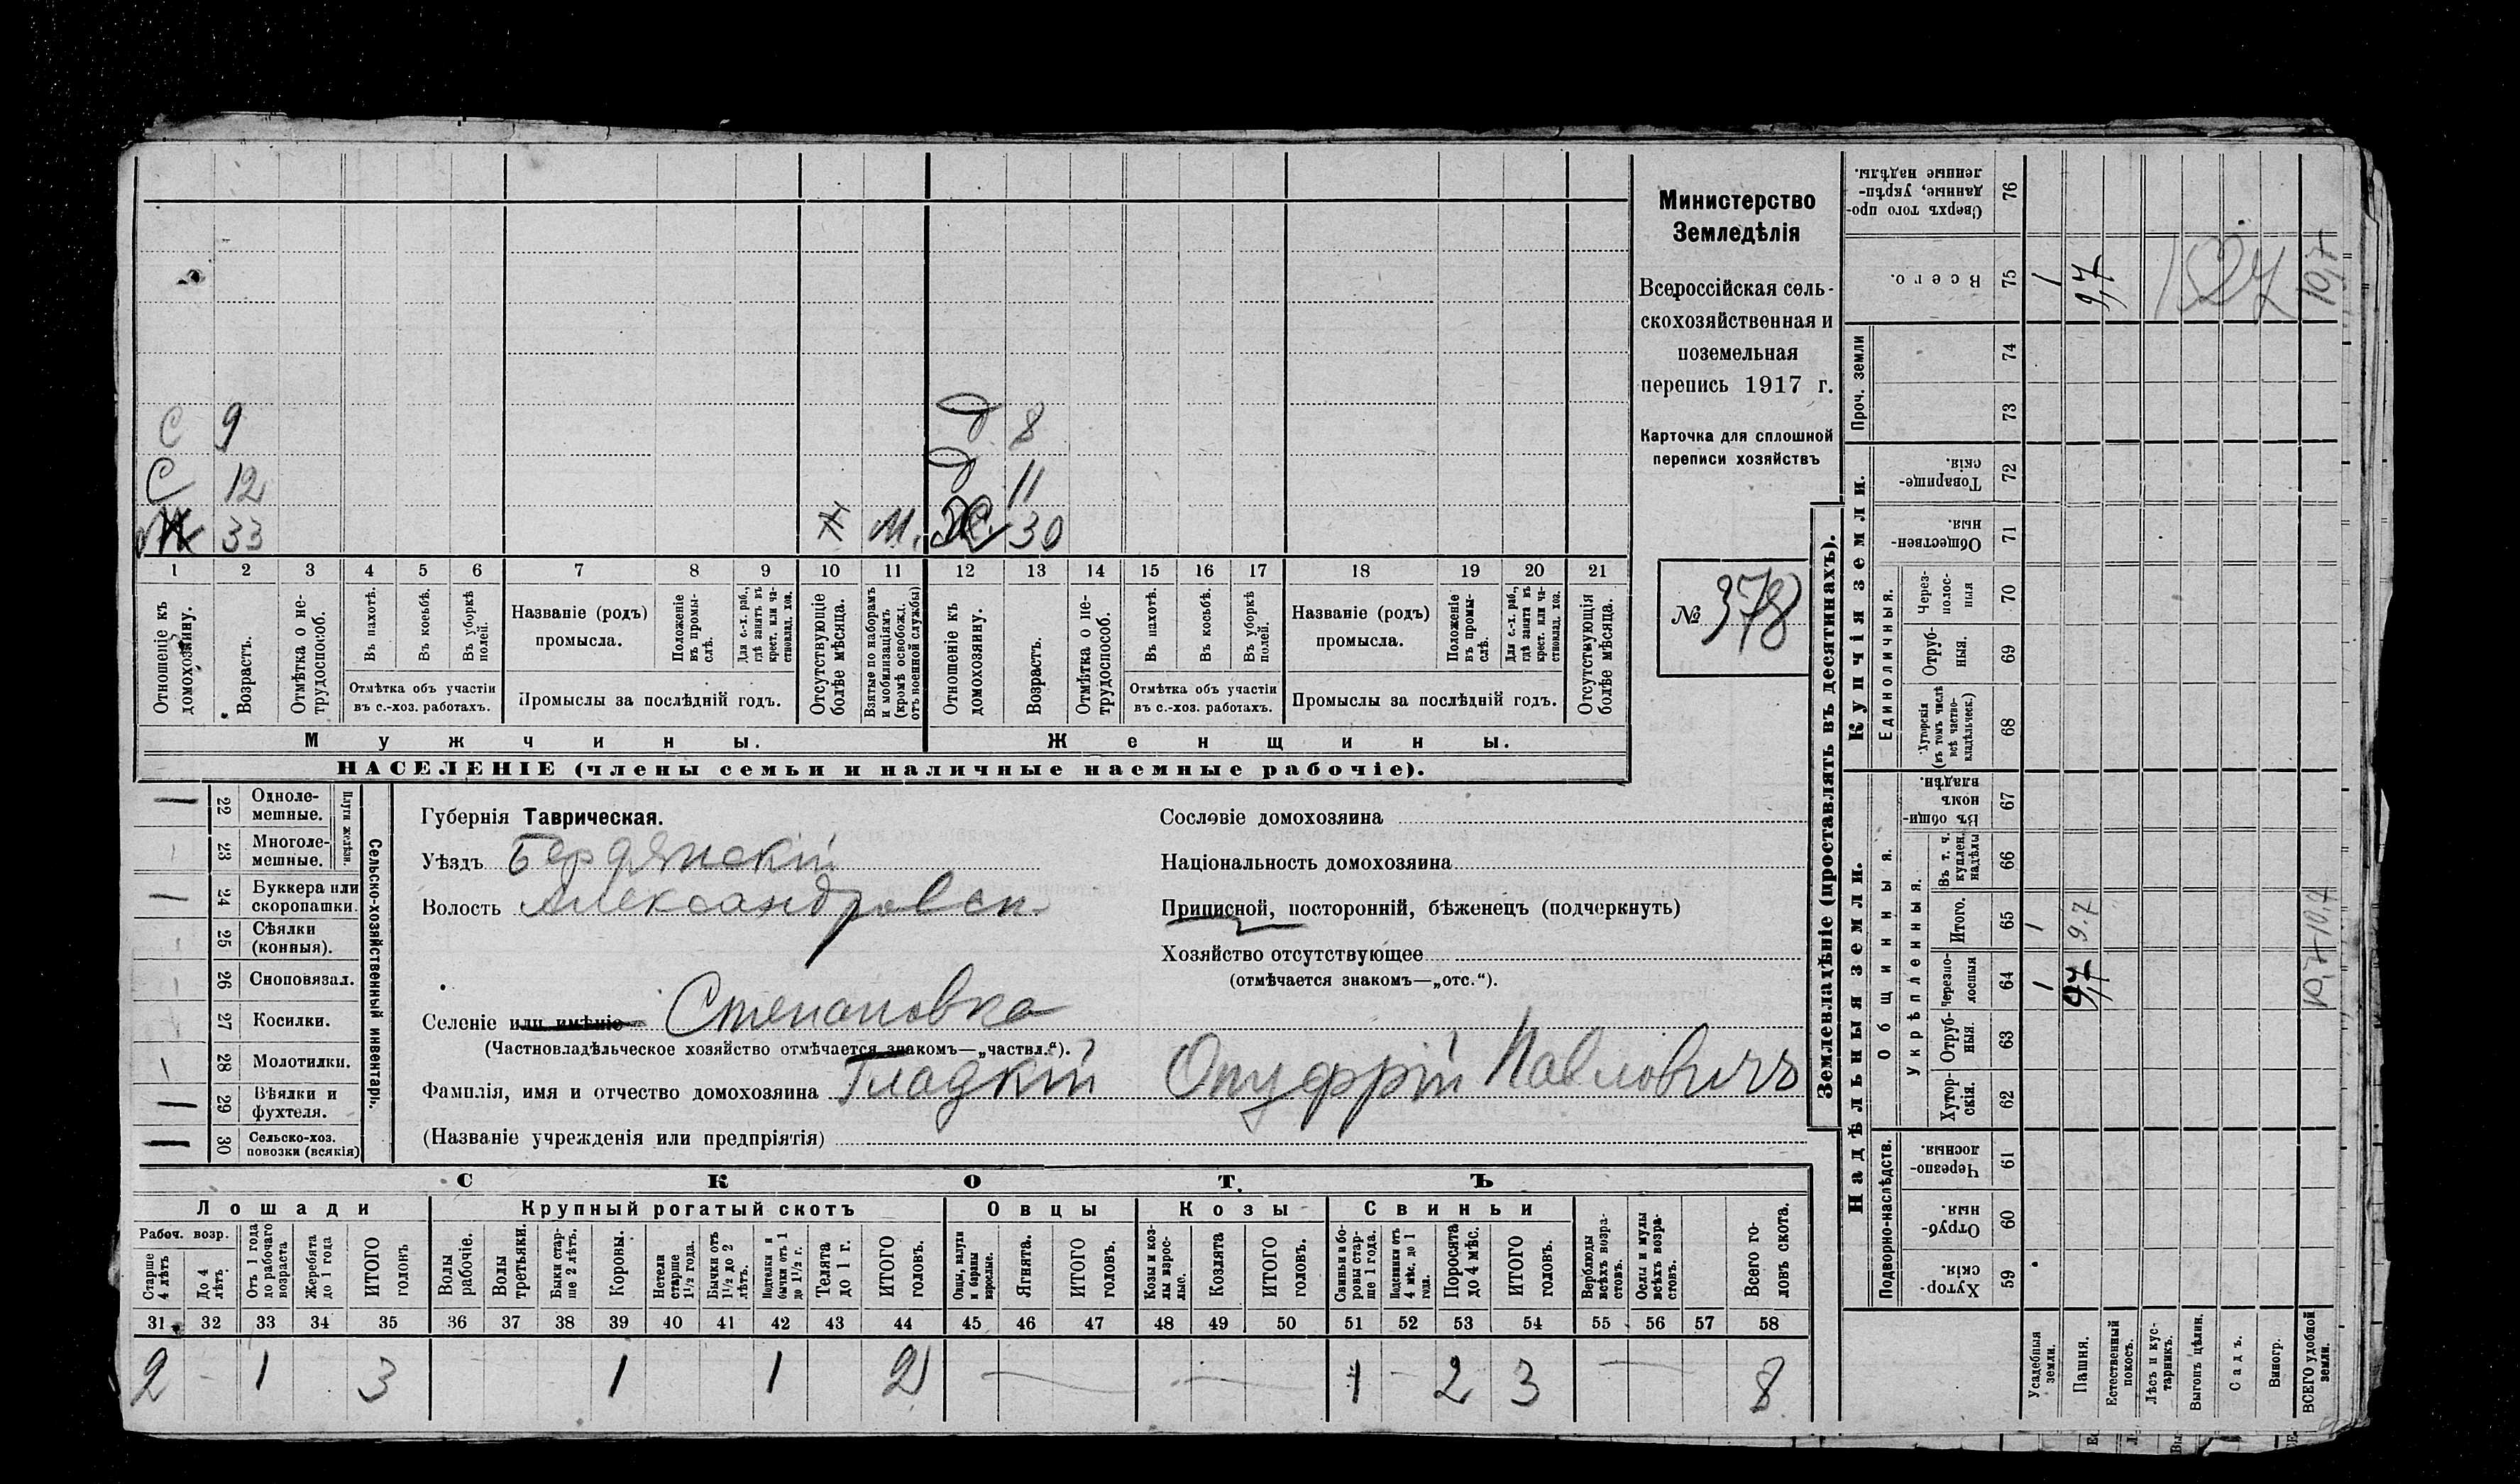 С 9 д 8
С 12 д 11
33 М. Ж. 30
1 2 3 4 5 6 7 8 9 10 11 12 13 14 15 16 17 18 19 20 21
Отношеніе къ домохозяину.
Возрастъ.
Отмѣтка о не-трудоспособ.
Въ пахотѣ.
Въ косьбѣ.
Въ уборкѣ полей.
Отмѣтка объ участіи
въ с.-хоз. работахъ.
Названіе (родъ)
промысла.
Положеніе въ промы-слѣ.
Для с.-х. раб., гдѣ занятъ въ крест. или ча-стновлад. хоз.
Промыслы за послѣдній годъ.
Отсутствующіе болѣе мѣсяца.
Взятые по наборамъ и мобилизаціямъ (кромѣ освобожд. отъ военной службы)
Отношеніе къ домохозяину.
Возрастъ.
Отмѣтка о не-трудоспособ.
Въ пахотѣ.
Въ косьбѣ.
Въ уборкѣ полей.
Отмѣтка объ участіи
въ с.-хоз. работахъ.
Названіе (родъ)
промысла.
Положеніе въ промы-слѣ.
Для с.-х. раб., гдѣ занятъ въ крест. или ча-стновлад. хоз.
Промыслы за послѣдній годъ.
Отсутствующія болѣе мѣсяца.
Мужчины.
Женщины.
НАСЕЛЕНІЕ (члены семьи и наличные наемные рабочіе).
Министерство
Земледѣлія
Всероссійская сель-
скохозяйственная и
поземельная
перепись 1917 г.
Карточка для сплошной
переписи хозяйствъ
№ 378
22 Одноле-мешные.
23 Многоле-мешные.
Плуги желѣзн.
24 Буккера или скоропашки.
25 Сѣялки (конныя).
26 Сноповязал.
27 Косилки.
28 Молотилки.
29 Вѣялки и фухтеля.
30 Сельско-хоз. повозки (всякія)
Сельско-хозяйственный инвентарь.
Губернія Таврическая.
Уѣздъ Бердянскій
Волость Александровск.
Селеніе или имѣніе Степановка
(Частновладѣльческое хозяйство отмѣчается знакомъ—„частвл.“).
Фамилія, имя и отчество домохозяина Гладкій Онуфрій Павловичъ
(Названіе учрежденія или предпріятія)
Сословіе домохозяина
Національность домохозяина
Приписной, посторонній, бѣженецъ (подчеркнуть)
Хозяйство отсутствующее
(отмѣчается знакомъ—„отс.“).
СКОТЪ
Лошади Крупный рогатый скотъ Овцы Козы Свиньи
Рабоч. возр.
Старше 4 лѣтъ
До 4 лѣтъ.
Отъ 1 года до рабочаго возраста
Жеребята до 1 года
ИТОГО головъ
Волы рабочіе.
Волы третьяки.
Быки стар-ше 2 лѣтъ.
Коровы.
Нетели старше 1½ года.
Бычки отъ 1½ до 2 лѣтъ.
Подтелки и бычки отъ 1 до 1½ г.
Телята до 1 г.
ИТОГО головъ.
Овцы, валухи и бараны взрослые.
Ягнята.
ИТОГО головъ.
Козы и коз-лы взрос-лые.
Козлята
ИТОГО головъ.
Свиньи и бо-ровы стар-ше 1 года.
Подсвинки отъ 4 мѣс. до 1 года.
Поросята до 4 мѣс.
ИТОГО головъ.
Верблюды всѣхъ возра-стовъ.
Ослы и мулы всѣхъ возра-стовъ.
Всего го-ловъ скота.
31 32 33 34 35 36 37 38 39 40 41 42 43 44 45 46 47 48 49 50 51 52 53 54 55 56 57 58
2 - 1 3 1 1 2 — — 1 - 2 3 — 8
Землевладѣніе (проставлять въ десятинахъ).
Надѣльныя земли.
Купчія земли.
Проч. земли
Подворно-наслѣдств.
Общинныя.
Укрѣпленныя.
Единоличныя.
Сверхъ того про-данные, укрѣп-ленные надѣлы. 76
Всего. 75 1 9,7 1527 10,7
74
73
Товарище-скія. 72
Обществен-ныя. 71
Через-полос-ныя 70
Отруб-ныя. 69
Хуторскія (въ томъ числѣ всѣ частно-владѣльческ.) 68
Въ общи-номъ владѣн. 67
Въ т. ч. куплен. надѣлы 66
Итого. 65 1 9.7 10,7
Черезпо-лосныя 64 1 9,7 10,7
Отруб-ныя. 63
Хутор-скія. 62
Черезпо-лосныя. 61
Отруб-ныя. 60
Хутор-скія. 59
Усадебныя земли.
Пашня.
Естественный покосъ.
Лѣсъ и кус-тарникъ.
Выгонъ цѣлин.
Садъ.
Виногр.
ВСЕГО удобной земли.